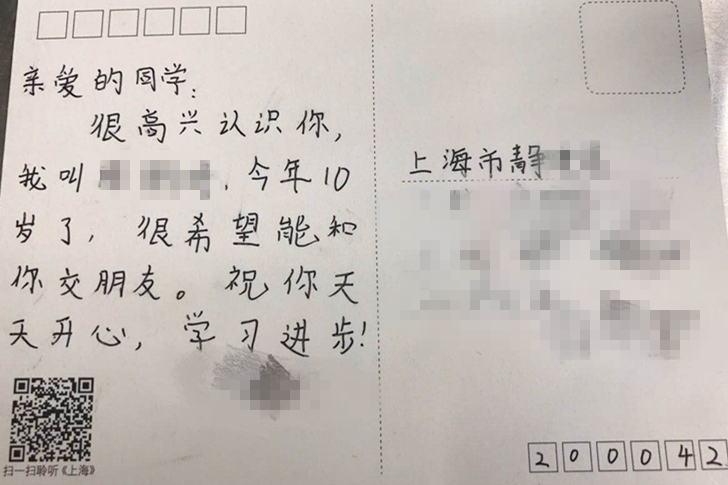 亲爱的同学:
很高兴认识你,
我叫 , 今年10
岁了, 很希望能和
你交朋友。祝你天
天开心, 学习进步!
扫一扫聆听《上海》
上海市静
200042